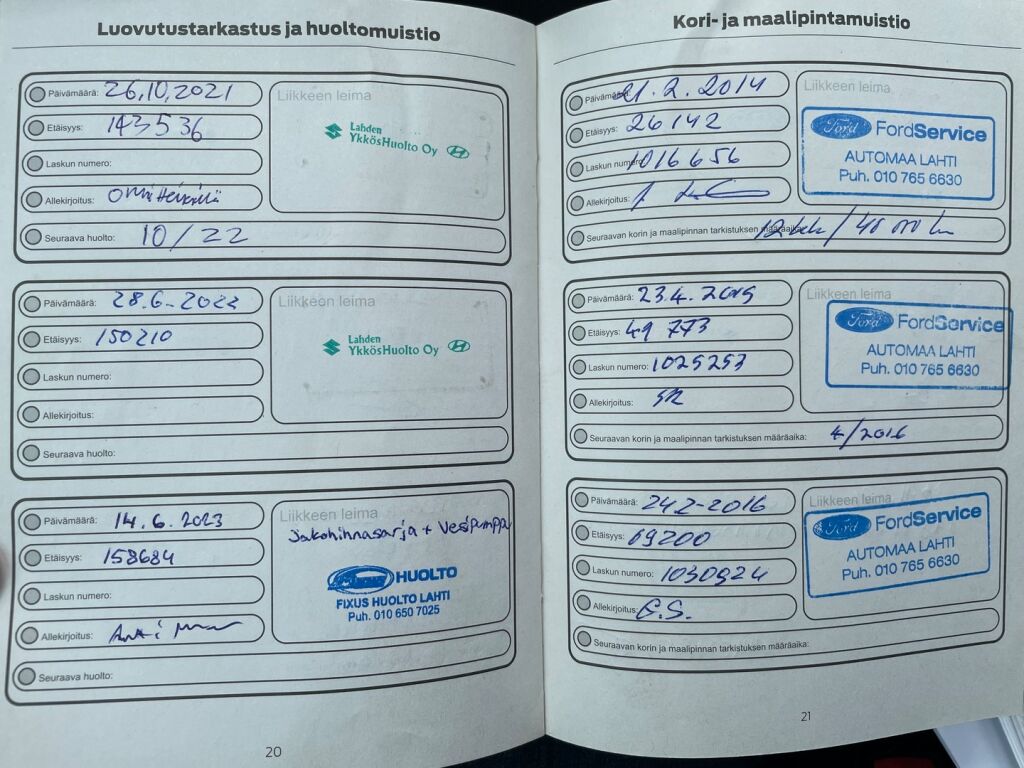 Luovutustarkastus ja huoltomuistio
Päivämäärä: 26.10.2021
Etäisyys: 143536
Laskun numero:
Allekirjoitus:
Seuraava huolto: 10/22
Liikkeen leima
Lahden
YkkösHuolto Oy
Päivämäärä: 28.6-2022
Etäisyys: 150210
Laskun numero:
Allekirjoitus:
Seuraava huolto:
Liikkeen leima
Lahden
YkkösHuolto Oy
Päivämäärä: 14.6.2023
Etäisyys: 158684
Laskun numero:
Allekirjoitus:
Seuraava huolto:
Liikkeen leima
Jakohihnasarja + Vesipumppu
HUOLTO
FIXUS HUOLTO LAHTI
Puh. 010 650 7025
20
Kori- ja maalipintamuistio
Päivämäärä: 21.2.2014
Etäisyys: 26142
Laskun numero: 1016656
Allekirjoitus:
Seuraavan korin ja maalipinnan tarkistuksen määräaika: 12kk/40 000 km
Liikkeen leima
Ford FordService
AUTOMAA LAHTI
Puh. 010 765 6630
Päivämäärä: 23.4.2015
Etäisyys: 49 773
Laskun numero: 1025253
Allekirjoitus: SR
Seuraavan korin ja maalipinnan tarkistuksen määräaika: 4/2016
Liikkeen leima
Ford FordService
AUTOMAA LAHTI
Puh. 010 765 6630
Päivämäärä: 24.2-2016
Etäisyys: 69200
Laskun numero: 1030924
Allekirjoitus: G.S.
Seuraavan korin ja maalipinnan tarkistuksen määräaika:
Liikkeen leima
Ford FordService
AUTOMAA LAHTI
Puh. 010 765 6630
21